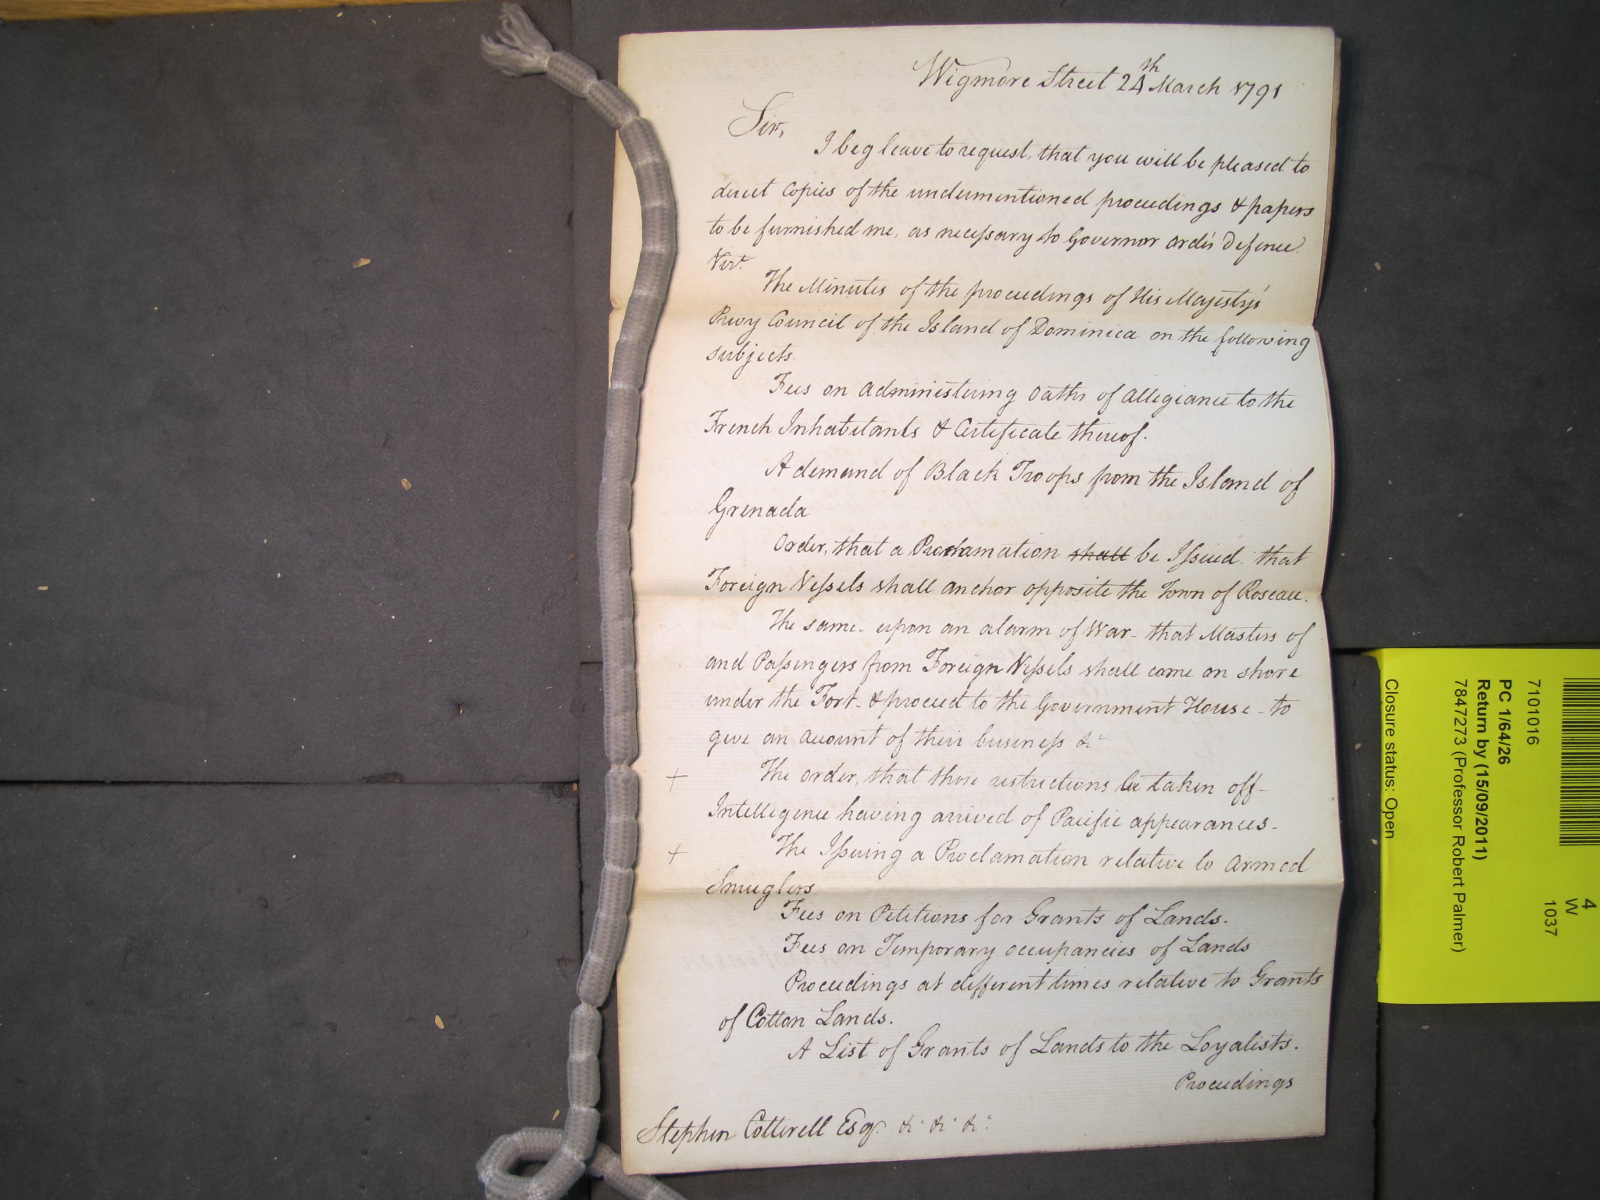 Wigmore Street 24th March 1791
Sir,
I beg leave to request, that you will be pleased to
direct Copies of the undermentioned proceedings & papers
to be furnished me, as necessary to Governor Orde's Defence.
Vizt.
The Minutes of the proceedings of His Majesty's
Privy Council of the Island of Dominica on the following
subjects.
Fees on administering Oaths of Allegiance to the
French Inhabitants & Certificate thereof.
A demand of Black Troops from the Island of
Grenada
Order, that a Proclamation shall be Issued that
Foreign Vessels shall anchor opposite the Town of Roseau.
The same - upon an alarm of War - that Masters of
and Passengers from Foreign Vessels shall come on shore
under the Fort - & proceed to the Government House - to
give an account of their business &c
+ The order, that those restrictions be taken off -
Intelligence having arrived of Pacific appearances -
+ The Issuing a Proclamation relative to Armed
Smuglers.
Fees on Petitions for Grants of Lands.
Fees on Temporary occupancies of Lands
Proceedings at different times relative to Grants
of Cotton Lands.
A List of Grants of Lands to the Loyalists.
Proceedings
Stephen Cotterell Esqr. &c. &c. &c.
7101016
PC 1/64/26
Return by (15/09/2011)
7847273 (Professor Robert Palmer)
Closure status: Open
4
W
1037